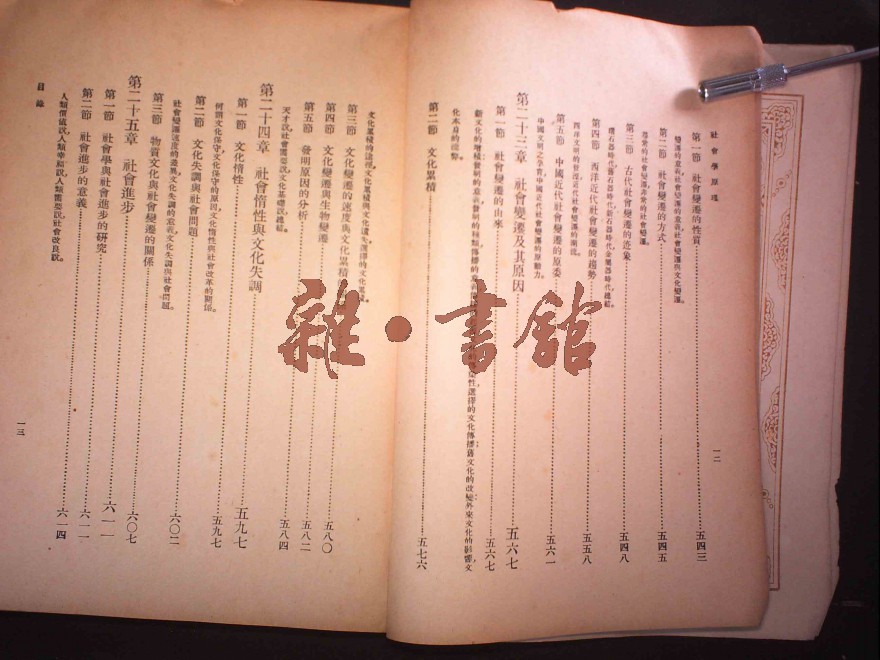 社會學原理
一二
第一節 社會變遷的性質……五四三
變遷的意義，社會變遷的意義，社會變遷與文化變遷。
第二節 社會變遷的方式……五四五
尋常的社會變遷，非常的社會變遷。
第三節 古代社會變遷的迹象……五四八
曙石器時代，舊石器時代，新石器時代，金屬器時代，總結。
第四節 西洋近代社會變遷的趨勢……五五八
西洋文明的發序，近代社會變遷的潮流。
第五節 中國近代社會變遷的原委……五六一
中國文明之孕育，中國近代社會變遷的原動力。
第二十三章 社會變遷及其原因……五六七
第一節 社會變遷的由來……五六七
新文化的增積，發明的意義，發明的種類，傳播的意義，選擇的文化傳播，舊文化的改變，外來文化的影響，文
化本身的調整。
第二節 文化累積……五七六
文化累積的法理，文化累積與文化遺失，選擇的文化累
第三節 文化變遷的速度與文化累積
第四節 文化變遷與生物變遷……五八〇
第五節 發明原因的分析……五八二
天才說，社會需要說，文化基礎說，總結。……五八四
第二十四章 社會惰性與文化失調……五九七
第一節 文化惰性……五九七
何謂文化保守，文化保守的原因，文化惰性與社會改革的關係。
第二節 文化失調與社會問題……六〇二
社會變遷速度的差異，文化失調的意義，文化失調與社會問題。
第三節 物質文化與社會變遷的關係……六〇七
第二十五章 社會進步……六一一
第一節 社會學與社會進步的研究……六一一
第二節 社會進步的意義……六一四
人類價值說，人類幸福說，人類需要說，社會改良說。
目錄
一三
雜·書館